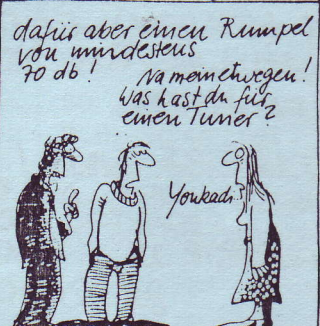 dafür aber einen Rumpel
von mindestens
70 db!
Na meinetwegen!
Was hast du für
einen Tuner?
Youkadi